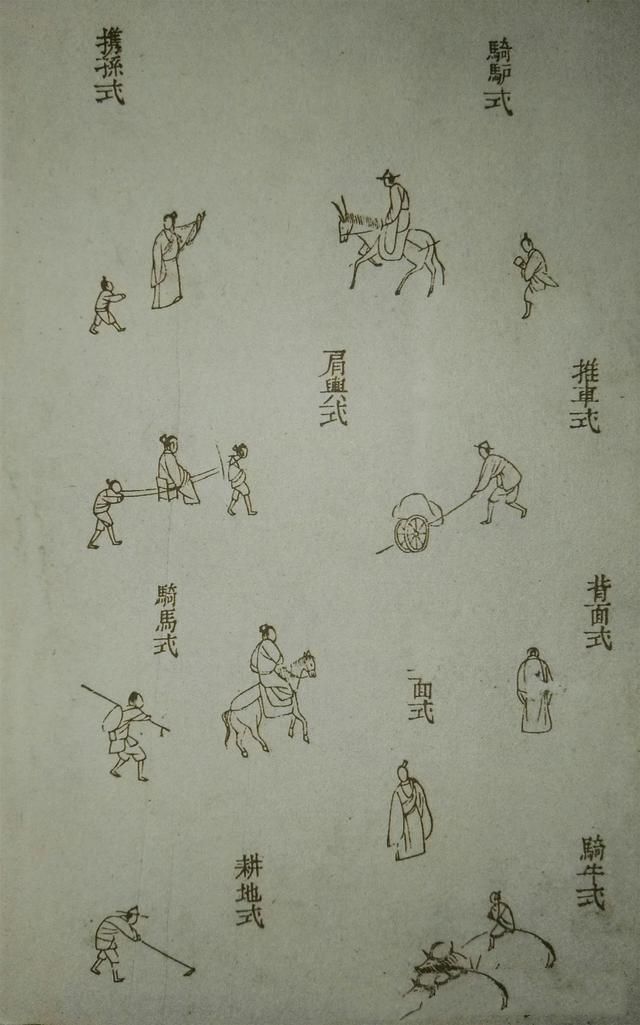 騎馿式
携孫式
推車式
肩輿式
背面式
面式
騎馬式
騎牛式
耕地式